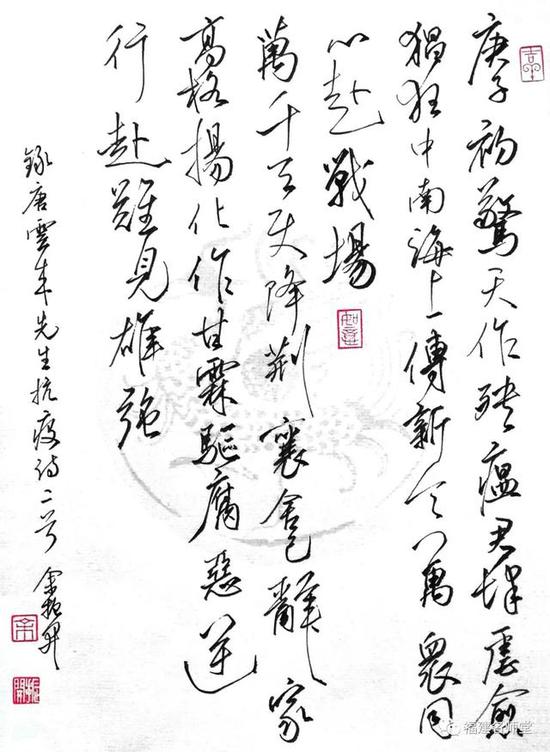 庚子初驚天作殃瘟君肆虐愈
猖狂中南海上傳新令萬眾同
心赴戰場
萬千天使降荊襄舍己辭家
高格揚化作甘霖驅腐惡逆
行赴難見雄強
錄唐雲先生抗疫诗二首
如意
福建名师堂